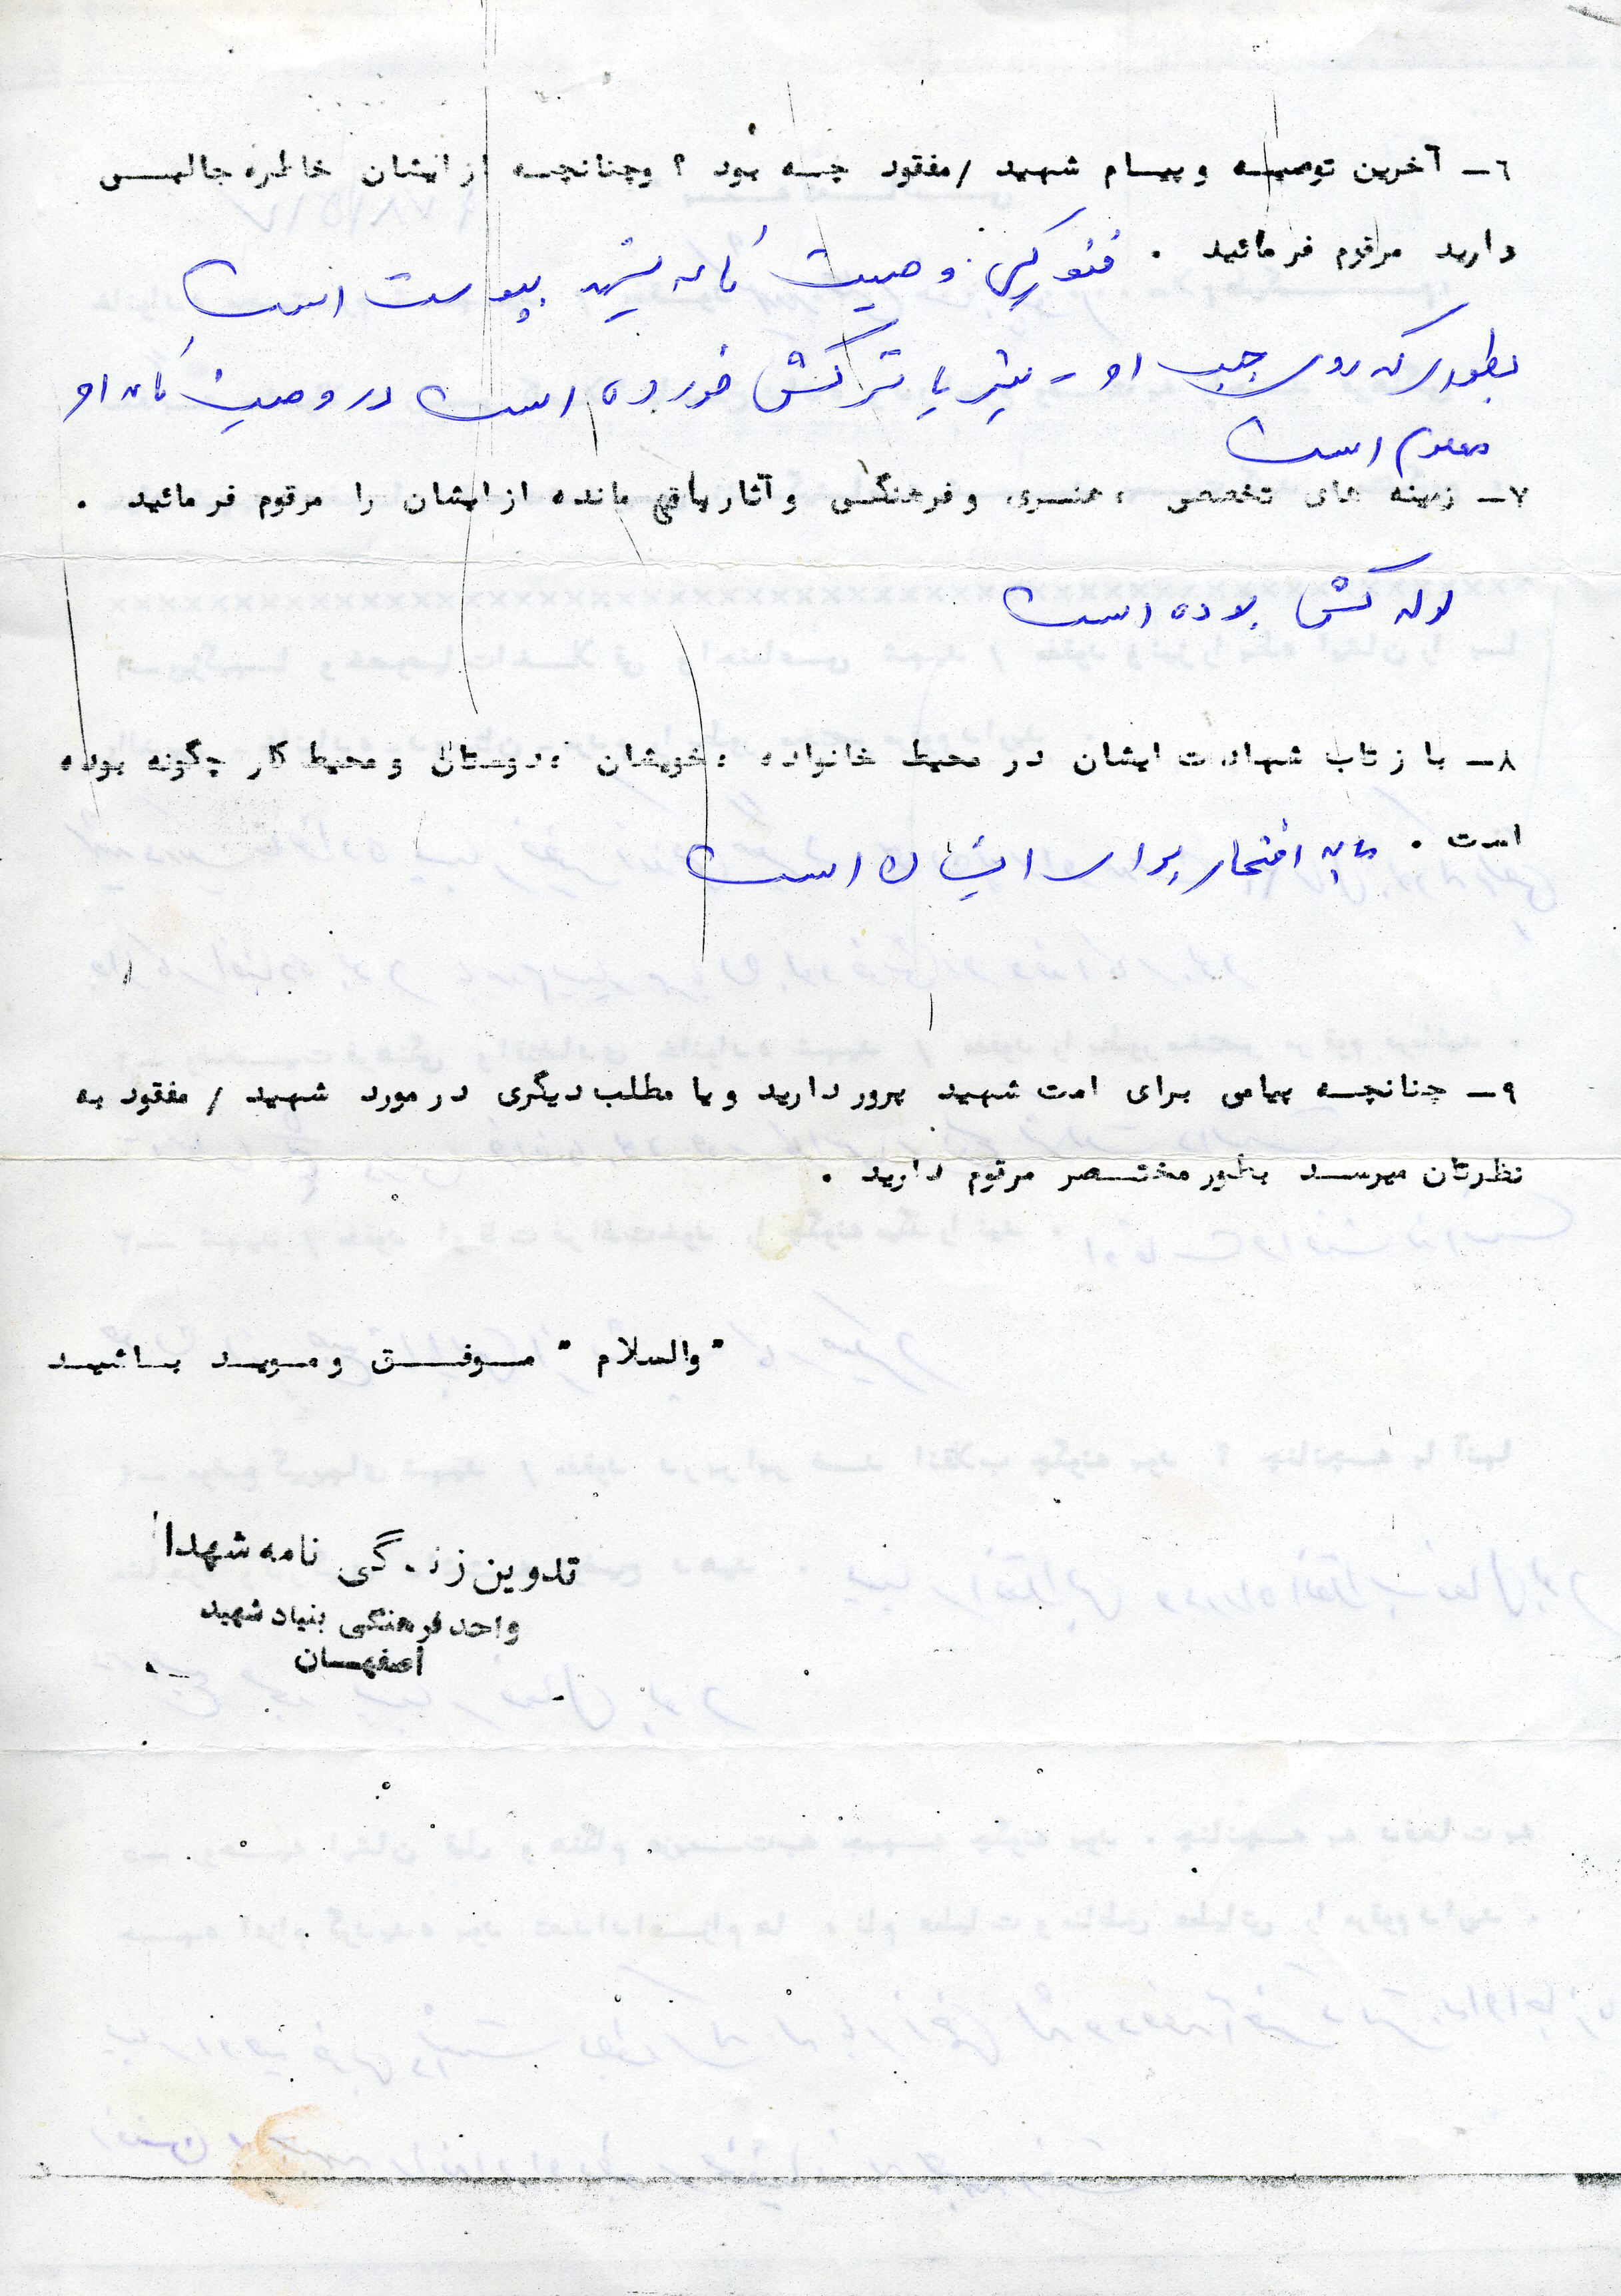 ٦ـ آخرین توصیه و پیام شهید / مفقود چه بود ؟ وچنانچه از ایشان خاطره جالبی
دارید مرقوم فرمائید . فتوکپی وصیت نامه شهید پیوست است
بطوری که روی جیب او - تیر یا ترکش خورده است در وصیت نامه او
معلوم است
۷ـ زمینه های تخصصی ، هنری، و فرهنگی و آثار باقی مانده از ایشان را مرقوم فرمائید .
لوله کش بوده است
۸ـ بازتاب شهادت ایشان در محیط خانواده ، خویشان ، دوستان و محیط کار چگونه بوده
است . مایه افتخار برای ایشان است
۹ـ چنانچه پیامی برای امت شهید پرور دارید و یا مطلب دیگری در مورد شهید / مفقود به
نظرتان میرسد بطور مختصر مرقوم دارید .
" والسلام " موفق و موید باشید
تدوین زندگی نامه شهدا
واحد فرهنگی بنیاد شهید
اصفهان